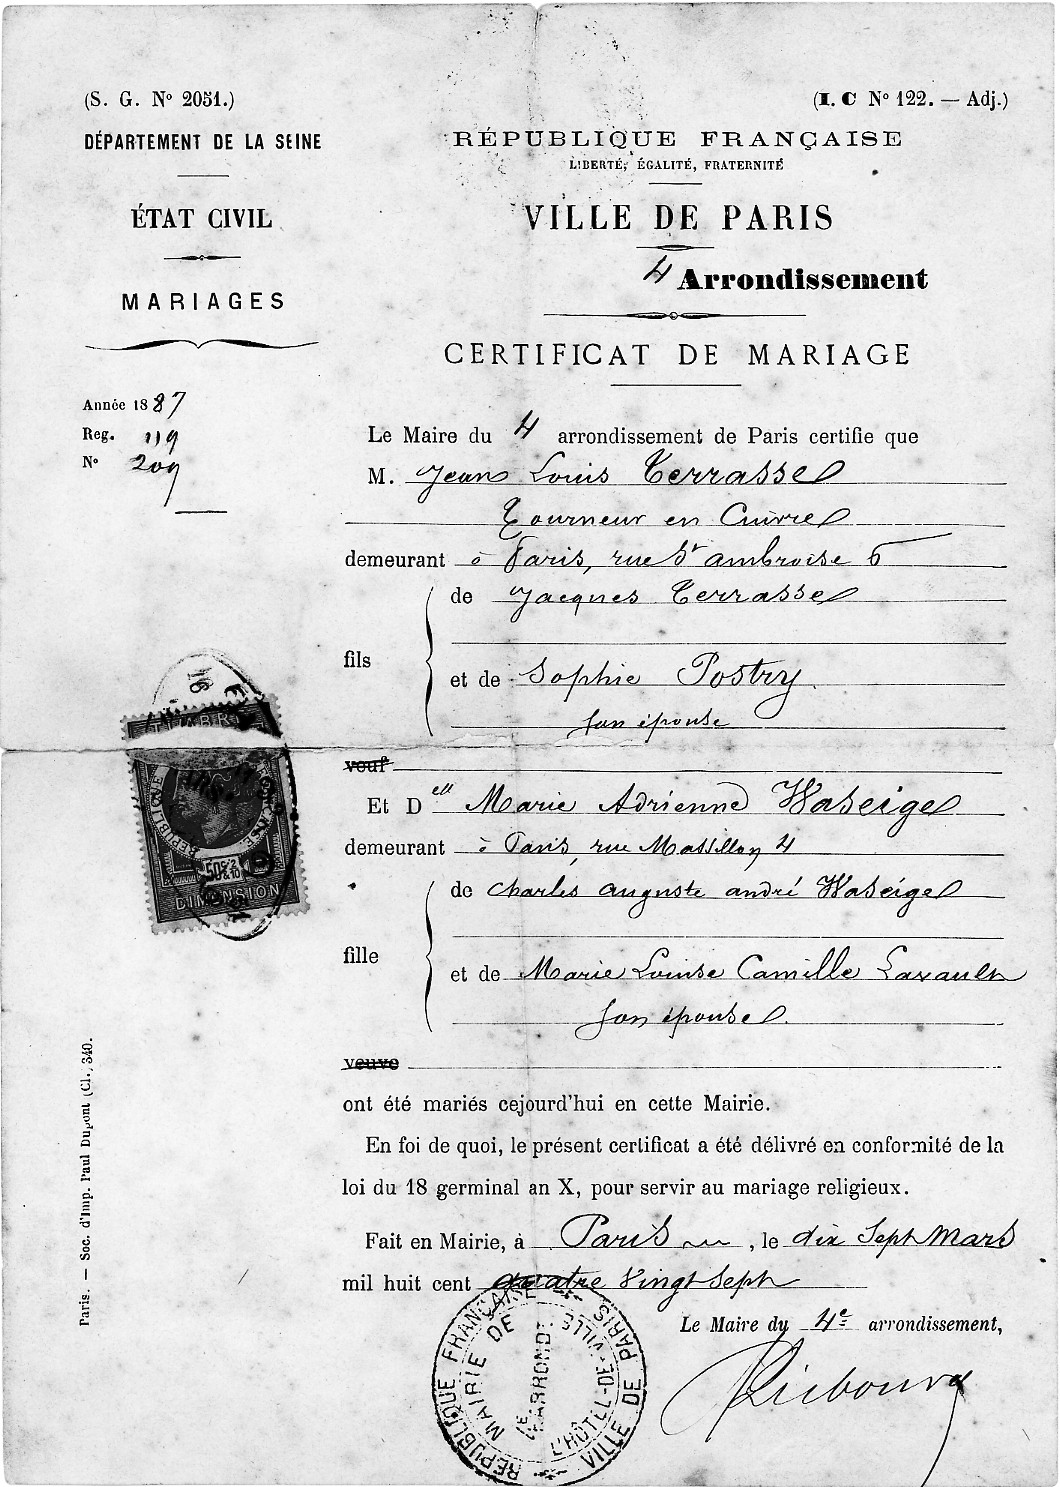 (S. G. N° 2051.)
DÉPARTEMENT DE LA SEINE
ÉTAT CIVIL
MARIAGES
Année 1887
Reg. 119
N° 209
(I. C N° 122. — Adj.)
RÉPUBLIQUE FRANÇAISE
LIBERTÉ, ÉGALITÉ, FRATERNITÉ
VILLE DE PARIS
4 Arrondissement
CERTIFICAT DE MARIAGE
Le Maire du 4 arrondissement de Paris certifie que
M. Jean Louis Terrasse
Tourneur en Cuivre
demeurant à Paris, rue St ambroise 6
de Jacques Terrasse
fils
et de Sophie Postry
son épouse
veuf
Et Dell Marie Adrienne Waseige
demeurant à Paris, rue Massillon 4
de Charles auguste andré Waseige
fille
et de Marie Louise Camille
son épouse.
veuve
ont été mariés cejourd'hui en cette Mairie.
En foi de quoi, le présent certificat a été délivré en conformité de la
loi du 18 germinal an X, pour servir au mariage religieux.
Fait en Mairie, à Paris, le dix Sept Mars
mil huit cent quatre Vingt Sept
Le Maire du 4e arrondissement,
RÉPUBLIQUE FRANÇAISE
VILLE DE PARIS
MAIRIE DE
L'HÔTEL-DE-VILLE
4e ARRONDT
TIMBRE
RÉPUBLIQUE
50c
DIMENSION
Paris. — Soc. d'Imp. Paul Dupont (Cl.) 340.